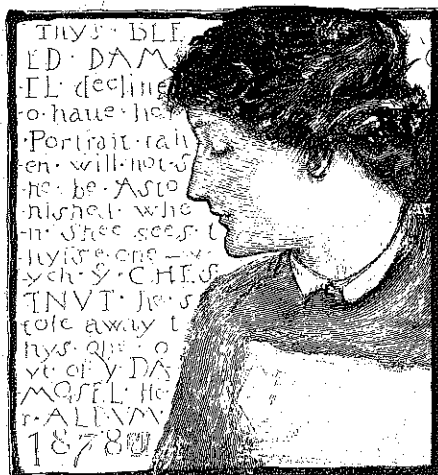 Thys · BLE
ED · DAM
EL decline
o haue · he
· Portrait · tak
en · will · not · S
he · be · Asto
nished · whe
n · Shee sees · t
hys · one — w
ych · y · CHES
TNVT · he · s
tole away t
hys · one · o
vt of y DA
MOSEL · He
r · ALBVM
1878